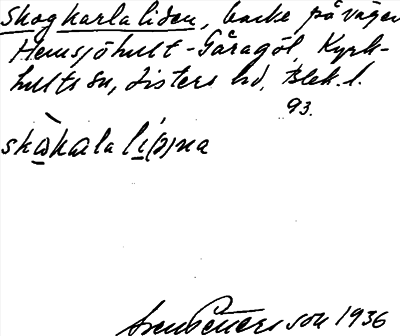 Skogkarlaliden, backe på vägen
Hemsjöhult-Gåragöl, Kyrk-
hults sn, Listers hd, Blek. l.
93.
skὰkala lí(ə)na
Sven Petersson 1936